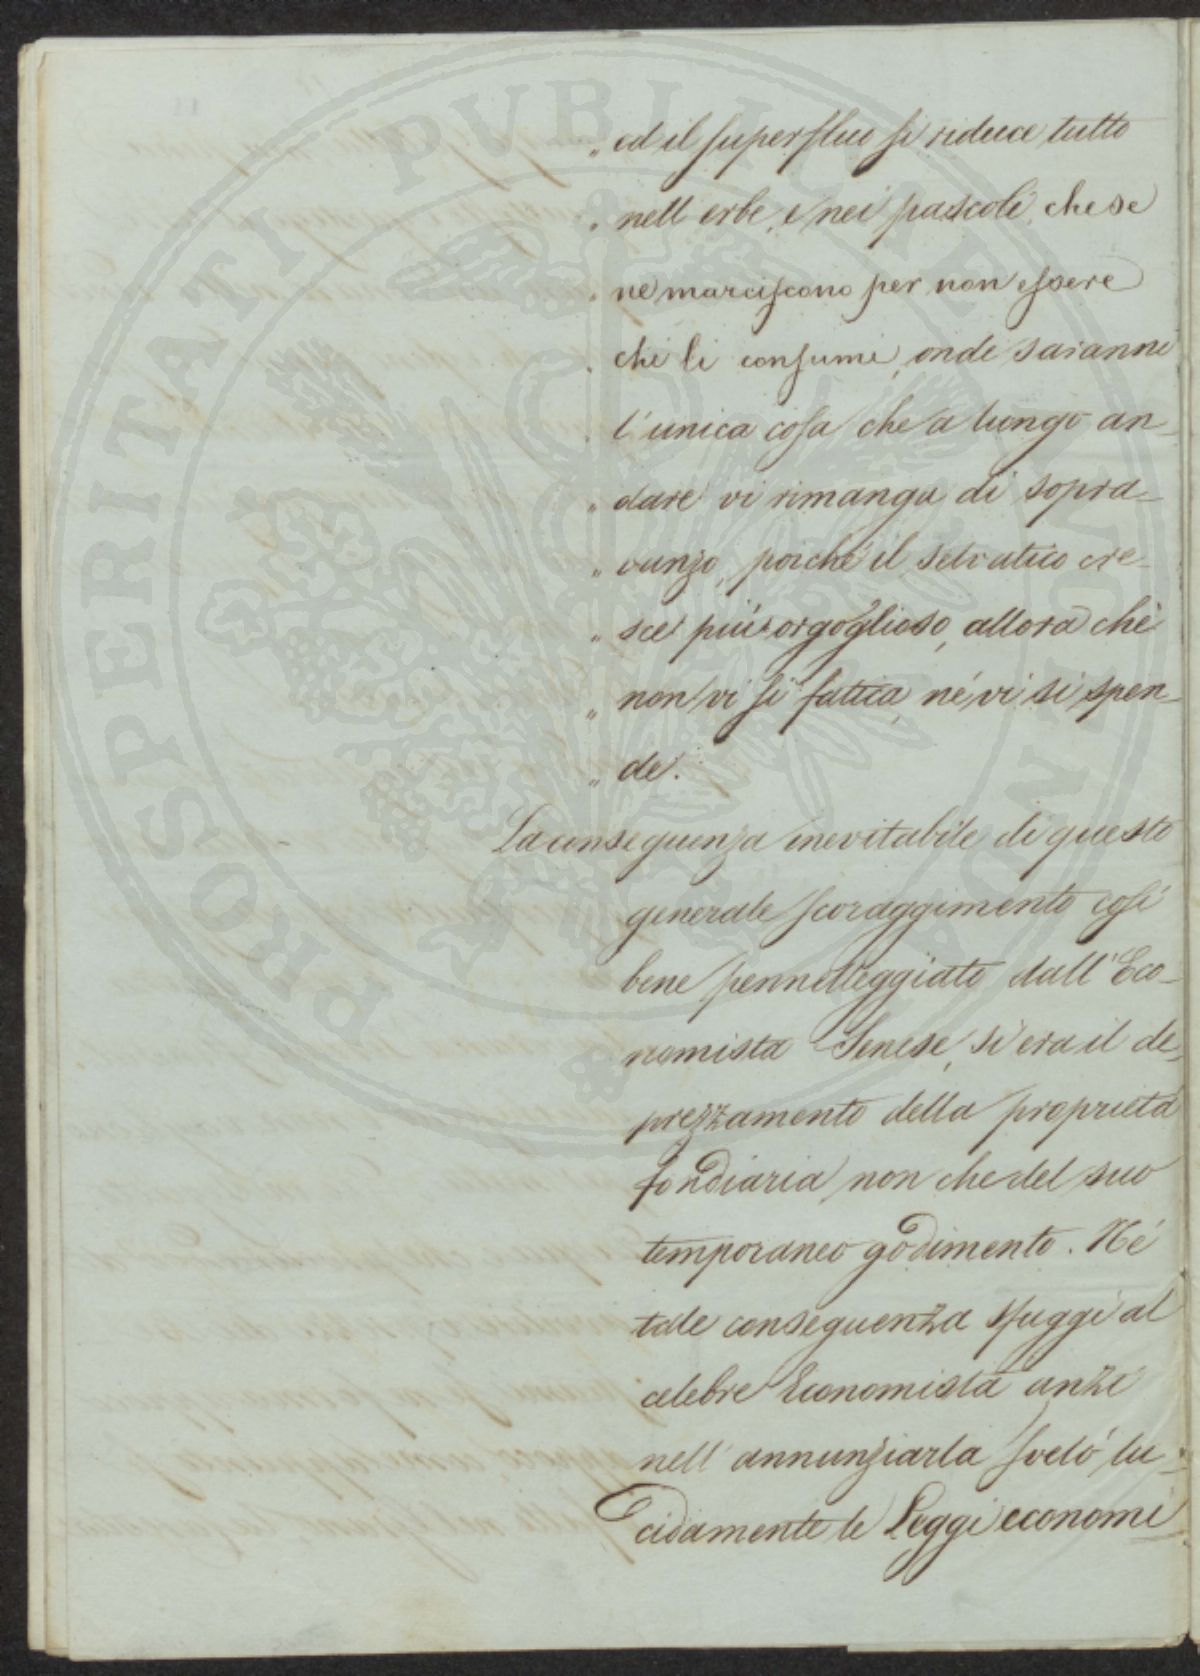 „ ed il superfluo si riduce tutto
„ nell erbe, e nei pascoli, che se
„ ne marciscono per non essere
„ chi li consumi, onde saranno
„ l'unica cosa che a lungo an-
„ dare vi rimanga di sopra-
„ vanzo, poiché il selvatico cre-
„ sce più orgoglioso, allora che
„ non vi si fatica, né vi si spen-
„ de.
La conseguenza inevitabile di questo
generale scoraggimento così
bene pennelleggiato dall'Eco-
nomista Senese, si era il de-
prezzamento della proprietà
fondiaria, non che del suo
temporaneo godimento. Né
tale conseguenza sfuggì al
celebre Economista anzi
nell'annunziarla svelò lu-
cidamente le Leggi economi
PROSPERITATI PUBLICAE AUGENDAE